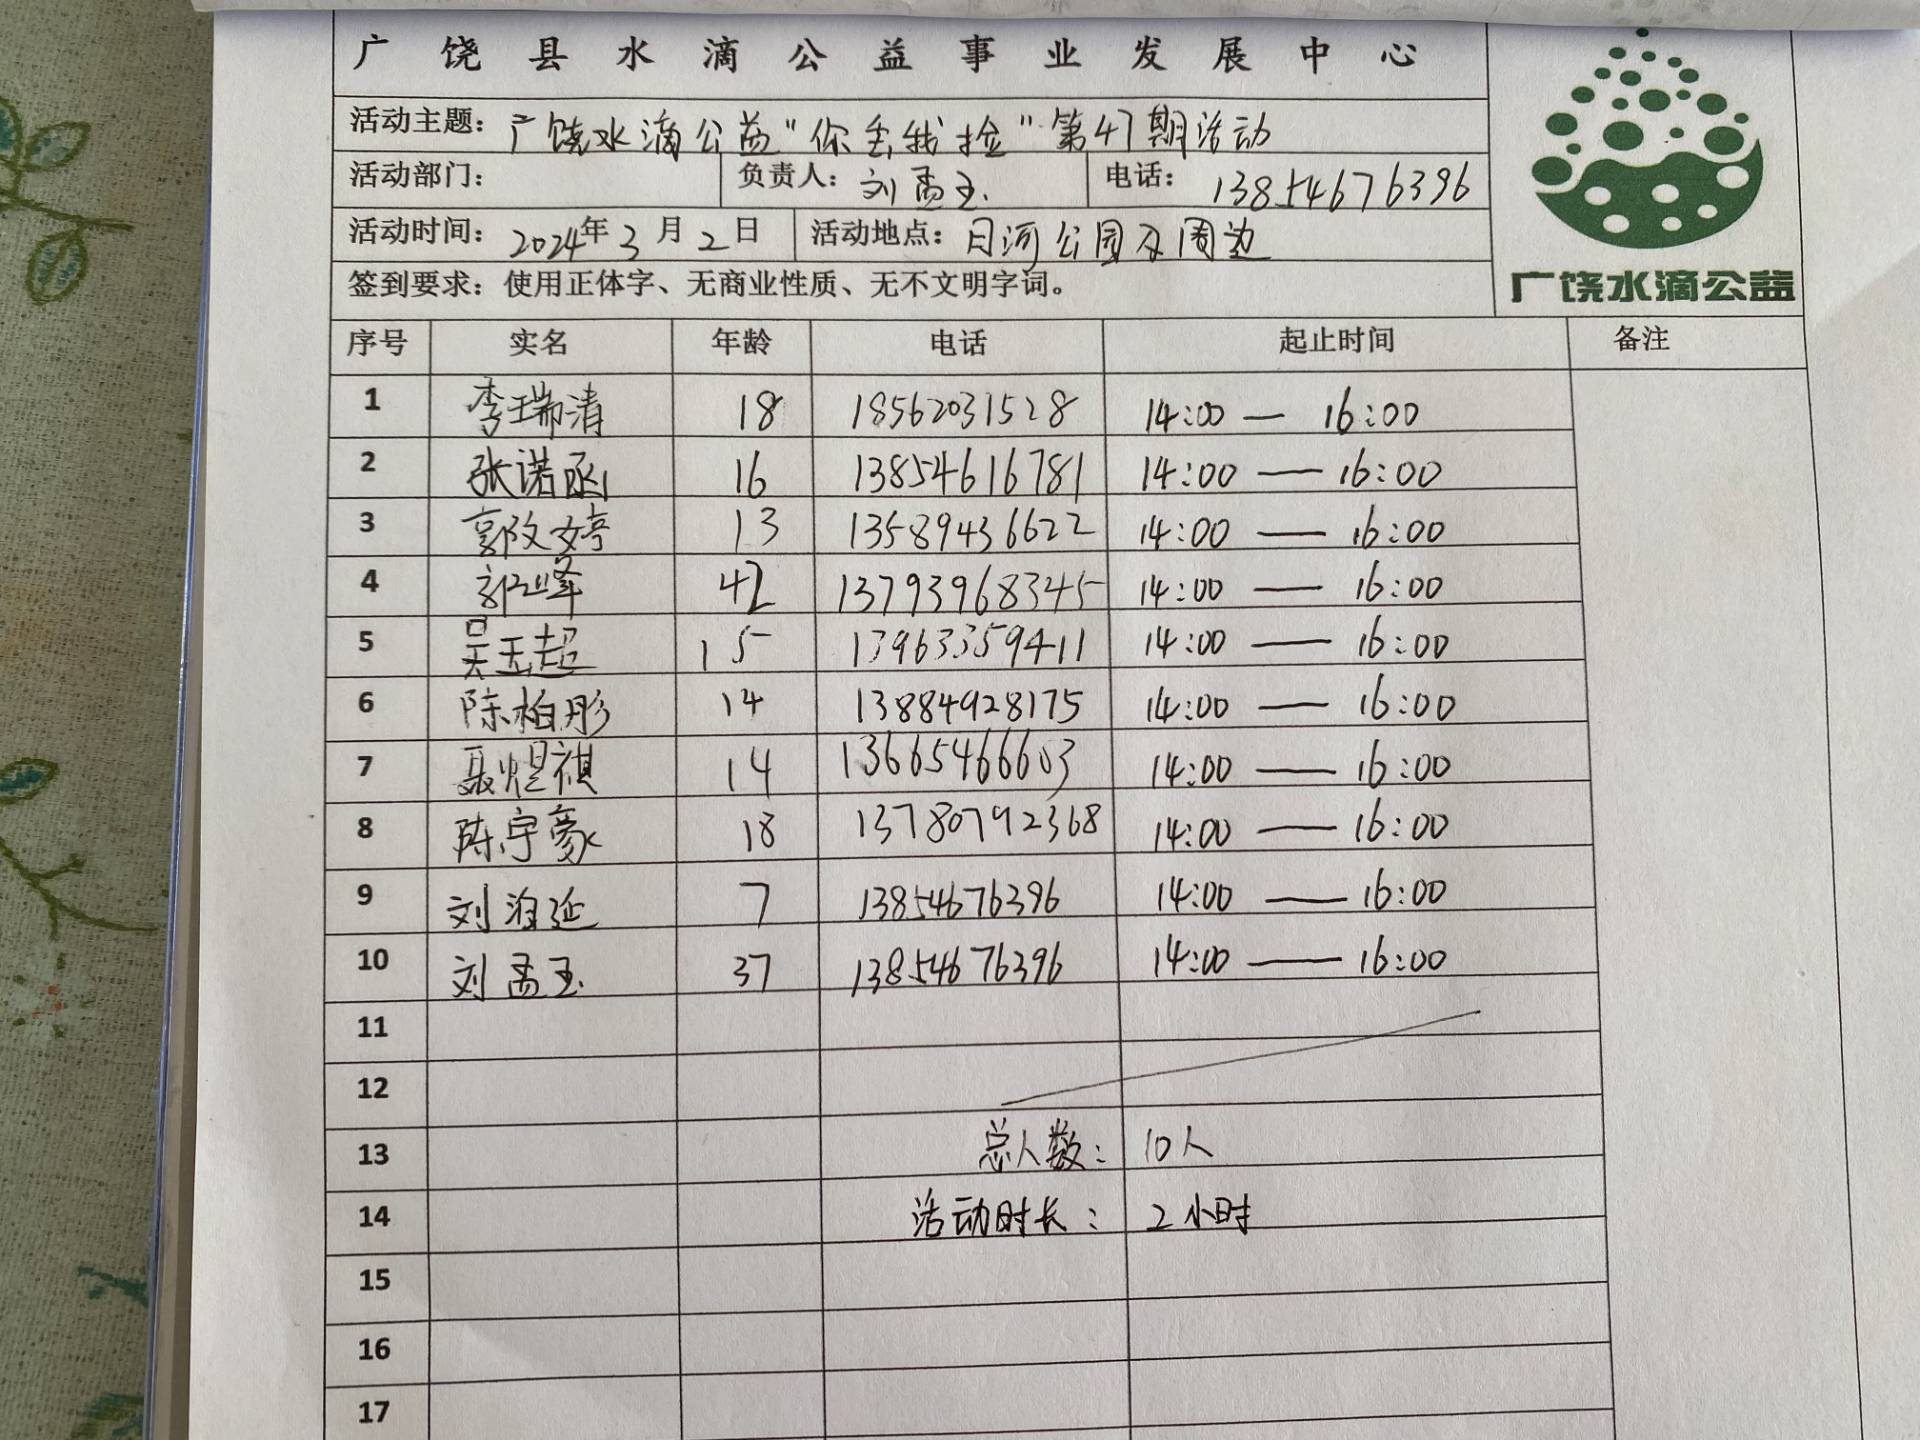 广饶县水滴公益事业发展中心
活动主题：广饶水滴公益"你丢我捡"第47期活动
活动部门： 负责人：刘孟玉 电话：13854676396
活动时间：2024年3月2日 活动地点：月河公园及周边
签到要求：使用正体字、无商业性质、无不文明字词。
广饶水滴公益
序号 实名 年龄 电话 起止时间 备注
1 李瑞清 18 18562031528 14:00—16:00
2 张诺函 16 13854616781 14:00—16:00
3 郭玫婷 13 13589436622 14:00—16:00
4 郭峰 42 13793968345 14:00—16:00
5 吴玉超 15 13963359411 14:00—16:00
6 陈柏彤 14 13884928175 14:00—16:00
7 聂煜祺 14 13665466603 14:00—16:00
8 陈宇豪 18 13780792368 14:00—16:00
9 刘 延 7 13854676396 14:00—16:00
10 刘孟玉 37 13854676396 14:00—16:00
11
12
13 总人数：10人
14 活动时长：2小时
15
16
17